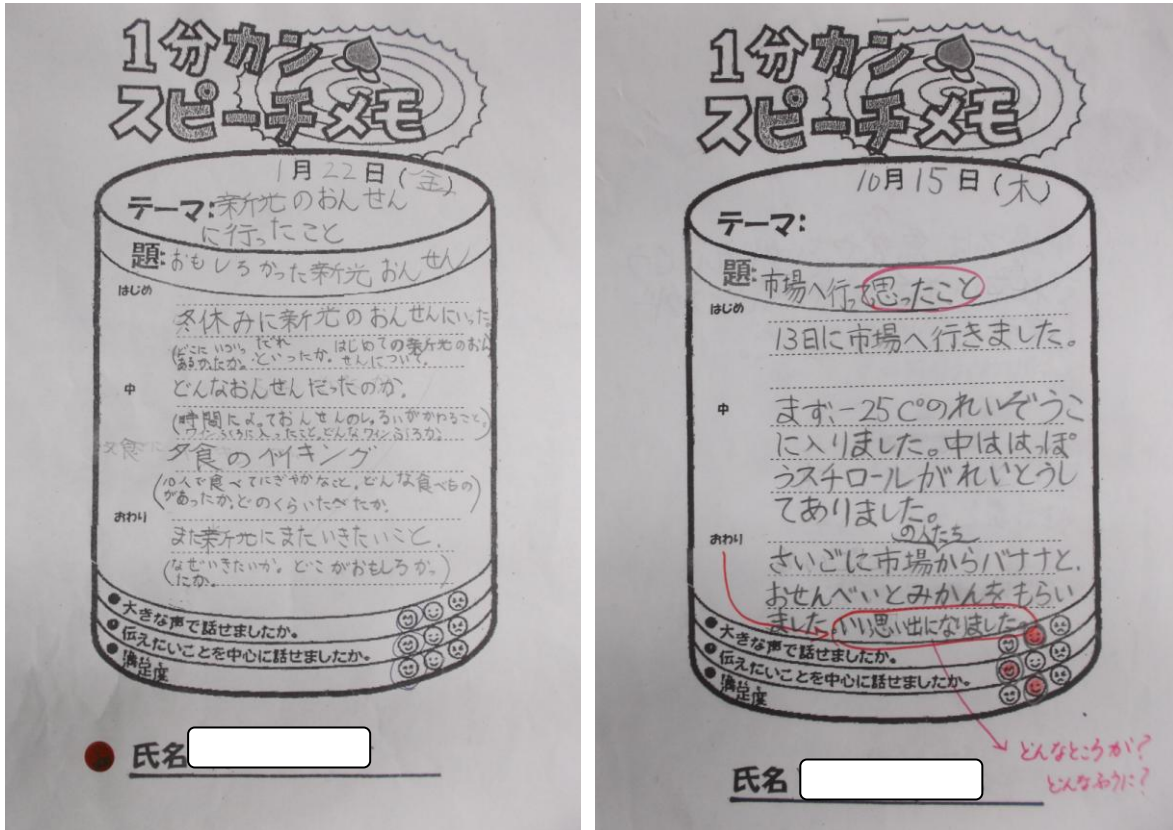 1分カン
スピーチメモ
1月22日(金)
テーマ:新光のおんせん
に行ったこと
題:おもしろかった新光おんせん
はじめ
冬休みに新光のおんせんにいった
だれ
といったか。
はじめての新光のおん
せんについて。
中
どんなおんせんだったのか。
(時間によっておんせんのしゅるいがかわること。
夕食のバイキング
(10人で食べてにぎやかなこと。どんな食べもの
があったか。どのくらいたべたか。)
おわり
また新光にまたいきたいこと。
(なぜいきたいか。どこがおもしろか)
たか。
大きな声で話せましたか。
伝えたいことを中心に話せましたか。
満足度
氏名
1分カン
スピーチメモ
10月15日(木)
テーマ:
題:市場へ行って思ったこと
はじめ
13日に市場へ行きました。
中
まず、-25C°のれいぞうこ
に入りました。中ははっぽ
うスチロールがれいとうし
てありました。
の人たち
おわり
さいごに市場からバナナと、
おせんべいとみかんをもらい
ました。いい思い出になりました。
大きな声で話せましたか。
伝えたいことを中心に話せましたか。
満足度
どんなところが?
どんなふうに?
氏名